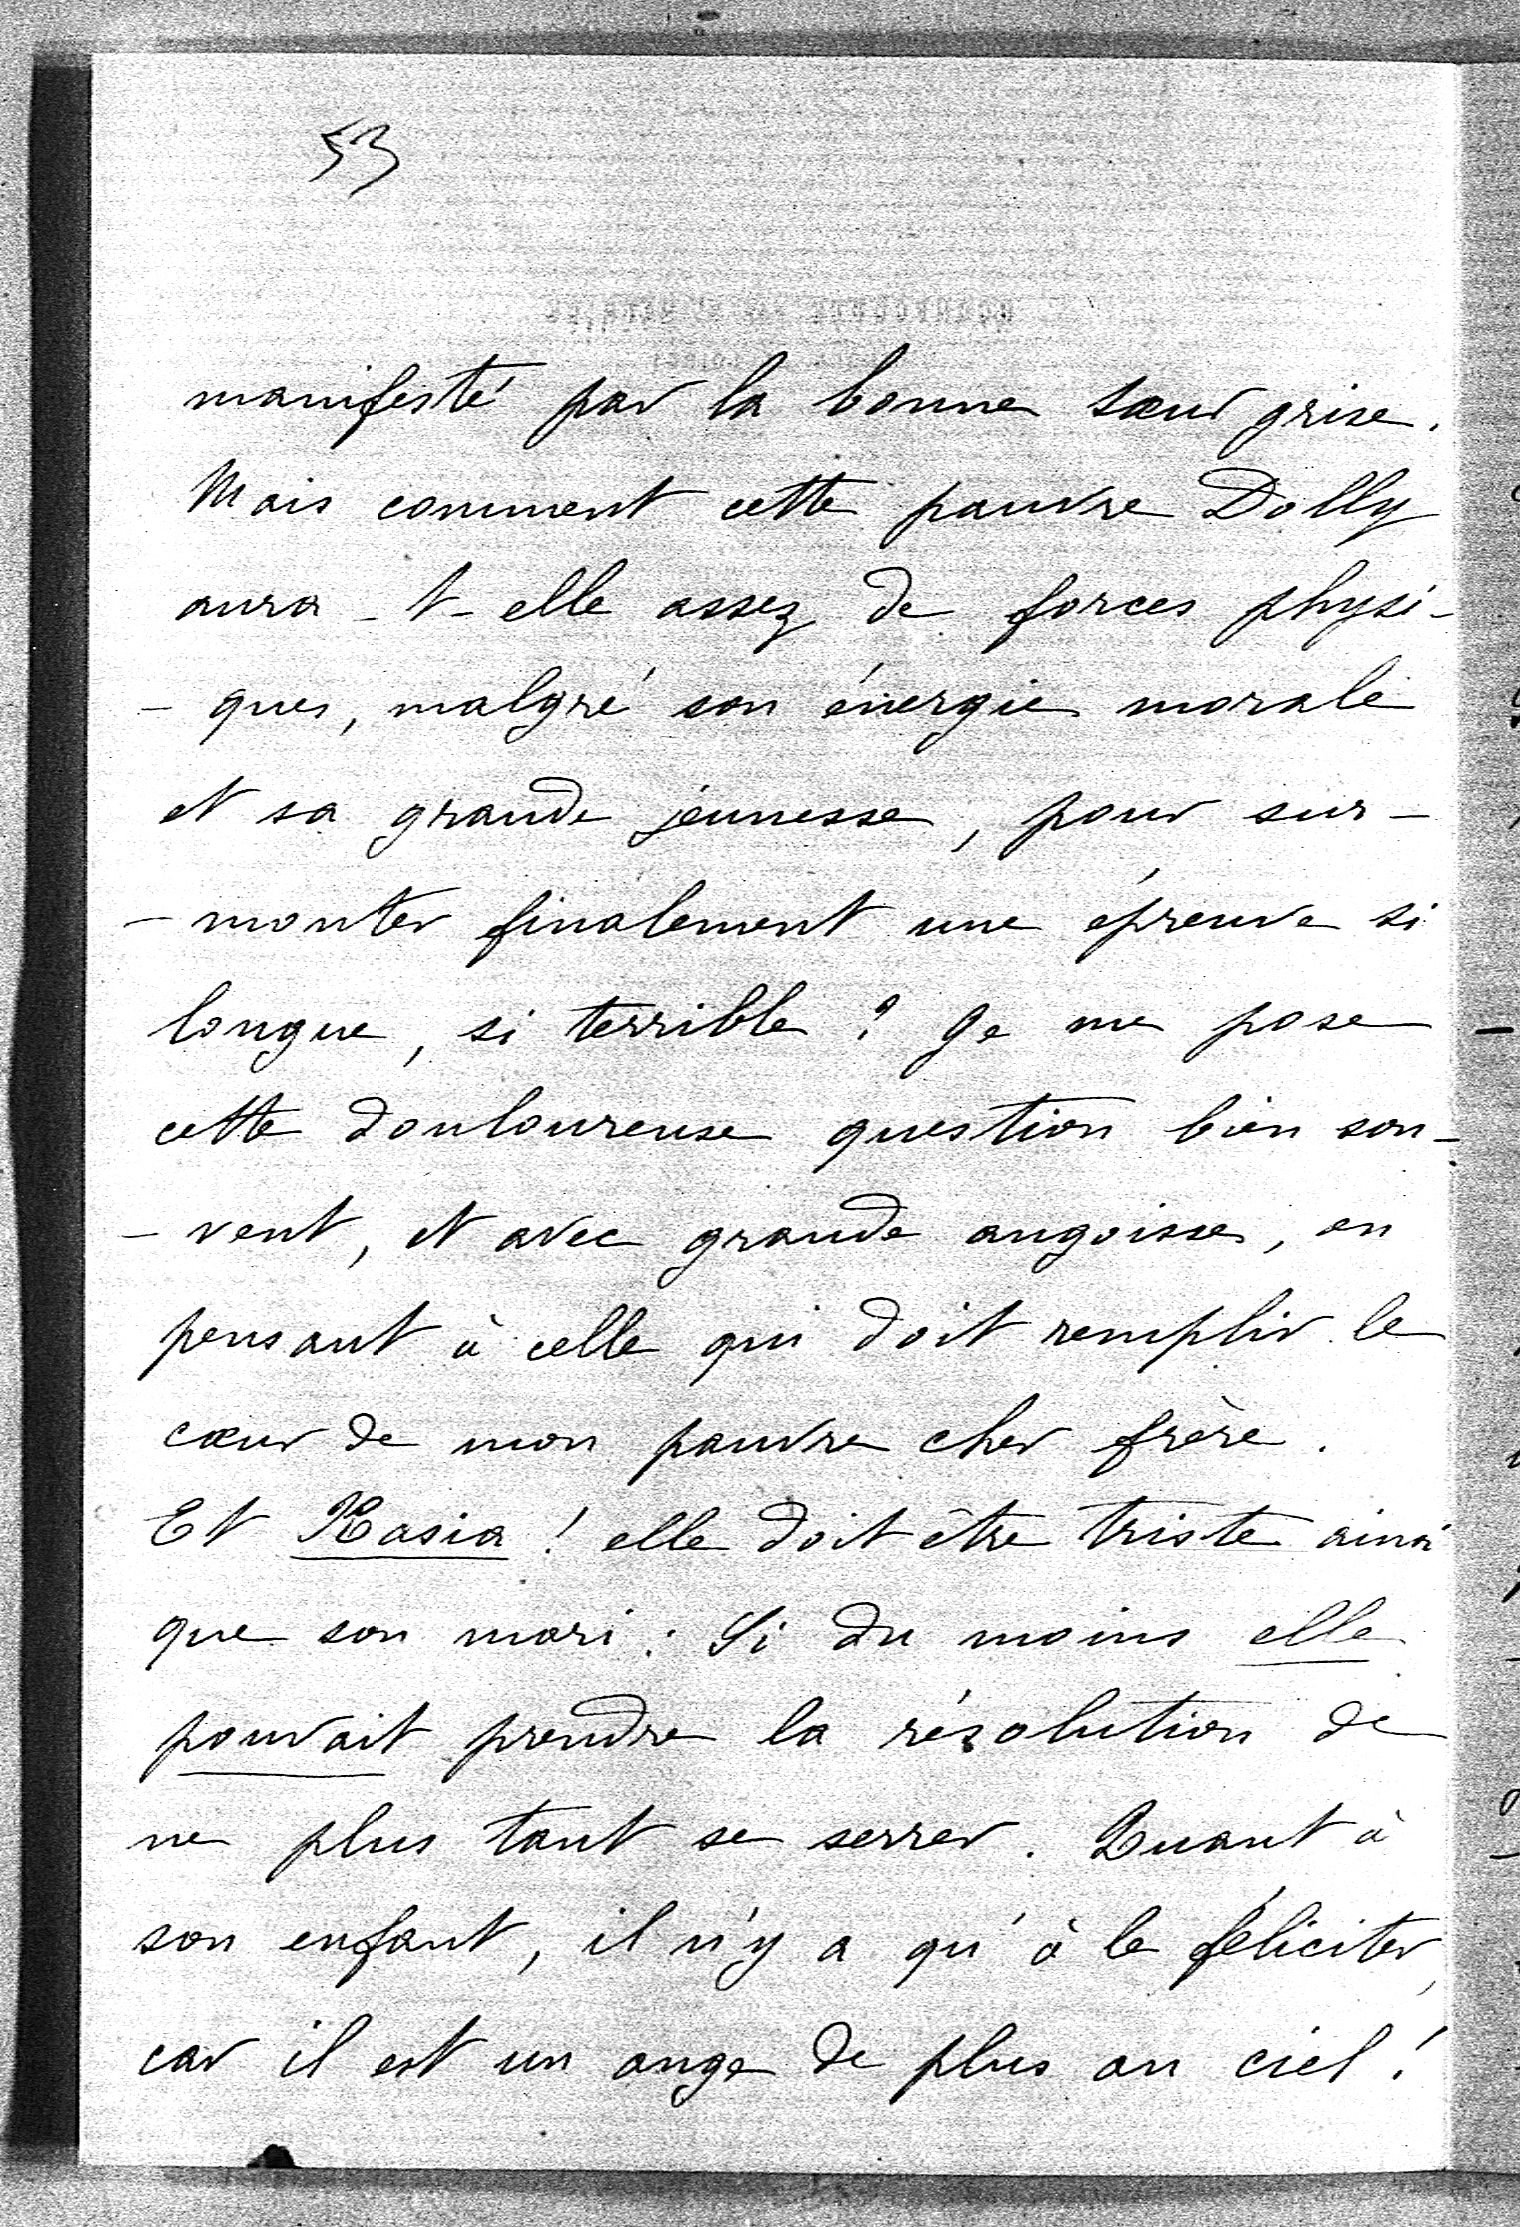 53
manifesté par la bonne sœur grise.
Mais comment cette pauvre Dolly
aura-t-elle assez de forces physi-
-ques, malgré son énergie morale
et sa grande jeunesse, pour sur-
-monter finalement une épreuve si
longue, si terrible ? Je me pose
cette douloureuse question bien sou-
-vent, et avec grande angoisse, en
pensant à celle qui doit remplir le
cœur de mon pauvre cher frère.
Et Kasia ! elle doit être triste ainsi
que son mari : Si du moins elle
pouvait prendre la résolution de
ne plus tant se serrer. Quant à
son enfant, il n'y a qu'à le féliciter,
car il est un ange de plus au ciel !